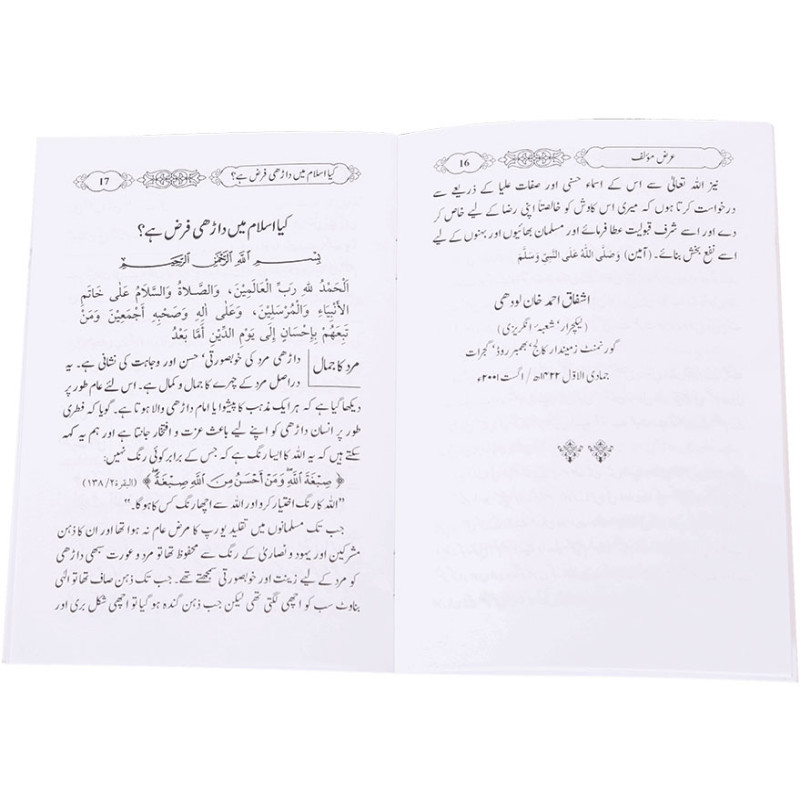 16
عرض مؤلف
نیز اللہ تعالیٰ سے اس کے اسماء حسنی اور صفات علیا کے ذریعے سے
درخواست کرتا ہوں کہ میری اس کاوش کو خالصتاً اپنی رضا کے لیے خاص کر
دے اور اسے شرف قبولیت عطا فرمائے اور مسلمان بھائیوں اور بہنوں کے لیے
اسے نفع بخش بنائے۔ (آمین) وَصَلَّی اللّٰہُ عَلَی النَّبِیِّ وَسَلَّمَ
اشفاق احمد خان لودھی
(لیکچرار' شعبہ' انگریزی)
گورنمنٹ زمیندار کالج' بھمبر روڈ' گجرات
جمادی الاوّل ۱۴۲۲ھ / اگست ۲۰۰۱ء
17
کیا اسلام میں داڑھی فرض ہے؟
کیا اسلام میں داڑھی فرض ہے؟
بِسْمِ اللّٰهِ الرَّحْمٰنِ الرَّحِيْمِ
اَلْحَمْدُ لِلّٰهِ رَبِّ الْعَالَمِيْنَ، وَالصَّلَاةُ وَالسَّلَامُ عَلٰى خَاتَمِ
الْأَنْبِيَاءِ وَالْمُرْسَلِيْنَ، وَعَلٰى اٰلِهٖ وَصَحْبِهٖ أَجْمَعِيْنَ وَمَنْ
تَبِعَهُمْ بِإِحْسَانٍ إِلٰى يَوْمِ الدِّيْنِ أَمَّا بَعْدُ
مرد کا جمال
داڑھی مرد کی خوبصورتی' حسن اور وجاہت کی نشانی ہے۔ یہ
دراصل مرد کے چہرے کا جمال و کمال ہے۔ اس لئے عام طور پر
دیکھا گیا ہے کہ ہر ایک مذہب کا پیشوا یا امام داڑھی والا ہوتا ہے۔ گویا کہ فطری
طور پر انسان داڑھی کو اپنے لیے باعث عزت و افتخار جانتا ہے اور ہم یہ کہہ
سکتے ہیں کہ یہ اللہ کا ایسا رنگ ہے کہ جس کے برابر کوئی رنگ نہیں:
﴿ صِبْغَةَ اللّٰهِ ۖ وَمَنْ أَحْسَنُ مِنَ اللّٰهِ صِبْغَةً ۖ ﴾ (البقرۃ ۲/۱۳۸)
"اللہ کا رنگ اختیار کرو اور اللہ سے اچھا رنگ کس کا ہو گا۔"
جب تک مسلمانوں میں تقلید یورپ کا مرض عام نہ ہوا تھا اور ان کا ذہن
مشرکین اور یہود و نصاریٰ کے رنگ سے محفوظ تھا تو مرد و عورت سبھی داڑھی
کو مرد کے لیے زینت اور خوبصورتی سمجھتے تھے۔ جب تک ذہن صاف تھا تو الٰہی
بناوٹ سب کو اچھی لگتی تھی لیکن جب ذہن گندہ ہو گیا تو اچھی شکل بری اور